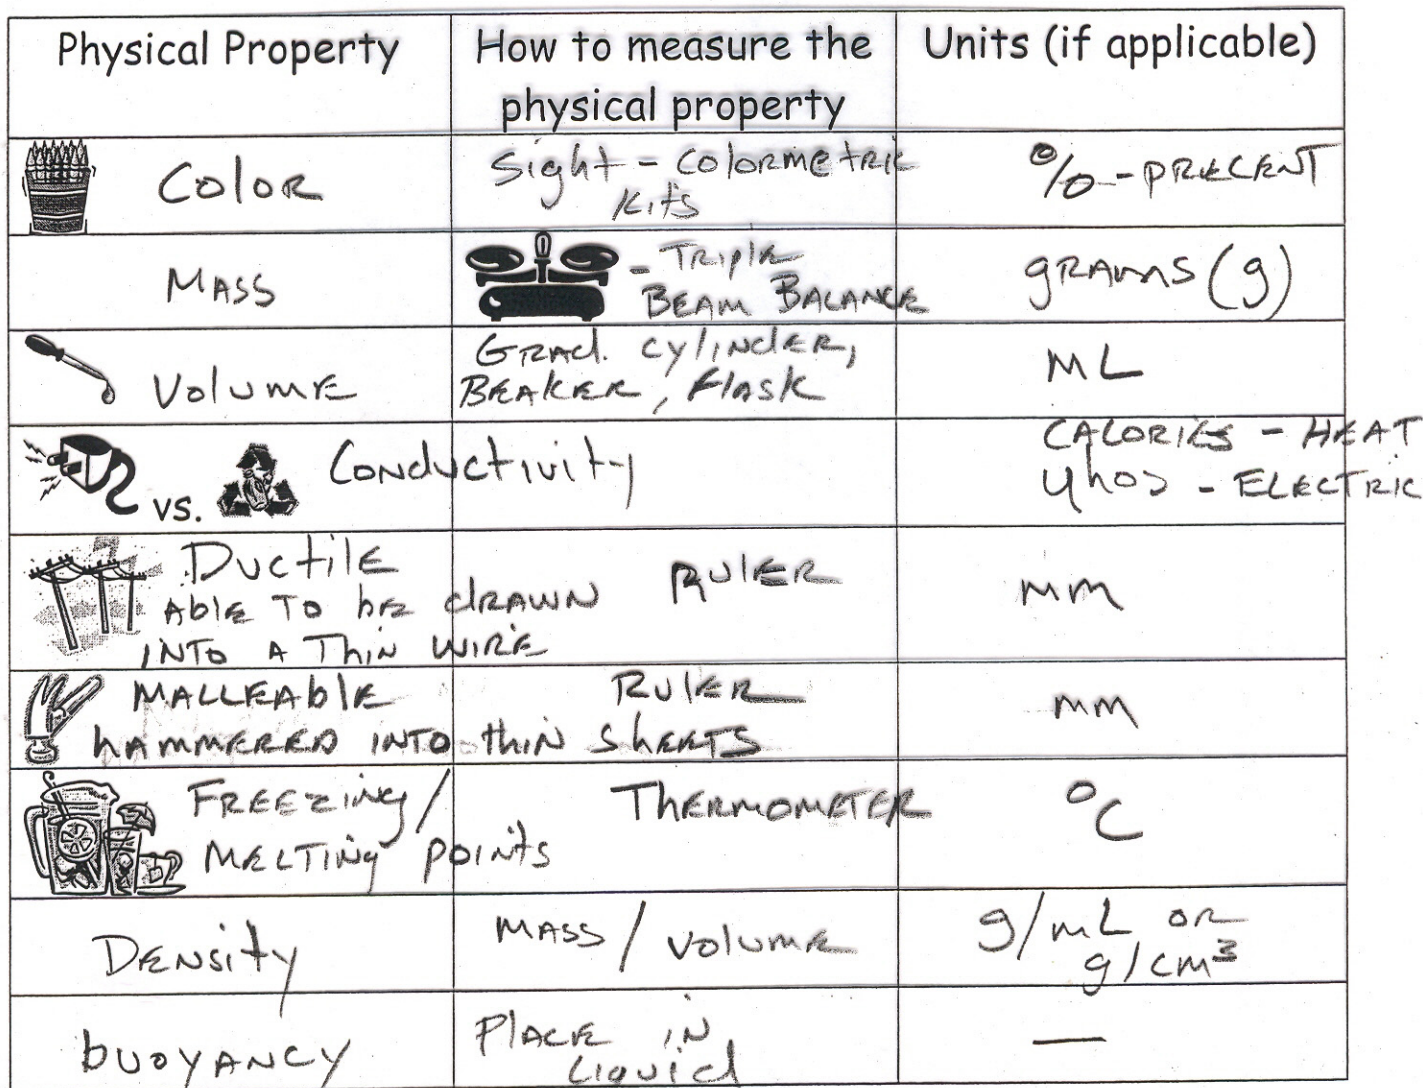 Physical Property
How to measure the
physical property
Units (if applicable)
Color
Sight - Colormetric
Kits
% - PRECENT
MASS
- Triple
BEAM BALANCE
GRAMS (g)
Volume
GRAD. Cylinder,
BEAKER, Flask
mL
vs.
Conductivity
CALORIES - HEAT
Mhos - ELECTRIC
Ductile
Able TO be drawn
INTO A Thin WIRE
RULER
mm
MALLEAble
hAMMERED INTO thin sheets
RULER
mm
FREEzing/
MELTING points
ThERMOMETER
°C
DENSity
MASS / volume
g/mL OR
g/cm³
buoyancy
Place in
Liquid
—